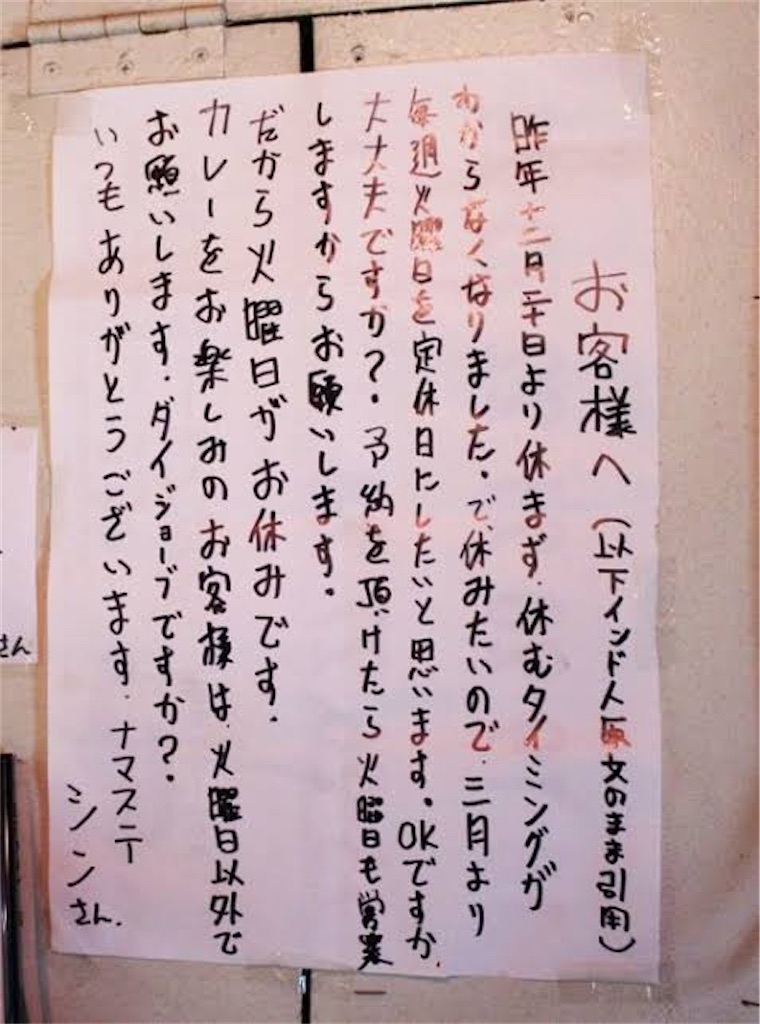 お客様へ(以下インド人原文のまま引用)
昨年十二月二十日より休まず、休むタイミングが
わからなくなりました。で、休みたいので、三月より
毎週火曜日を定休日にしたいと思います。OKですか、
大丈夫ですか?。予約を頂けたら火曜日も営業
しますからお願いします。
だから火曜日がお休みです。
カレーをお楽しみのお客様は、火曜日以外で
お願いします。ダイジョーブですか?。
いつもありがとうございます。ナマステ
シンさん。
さん